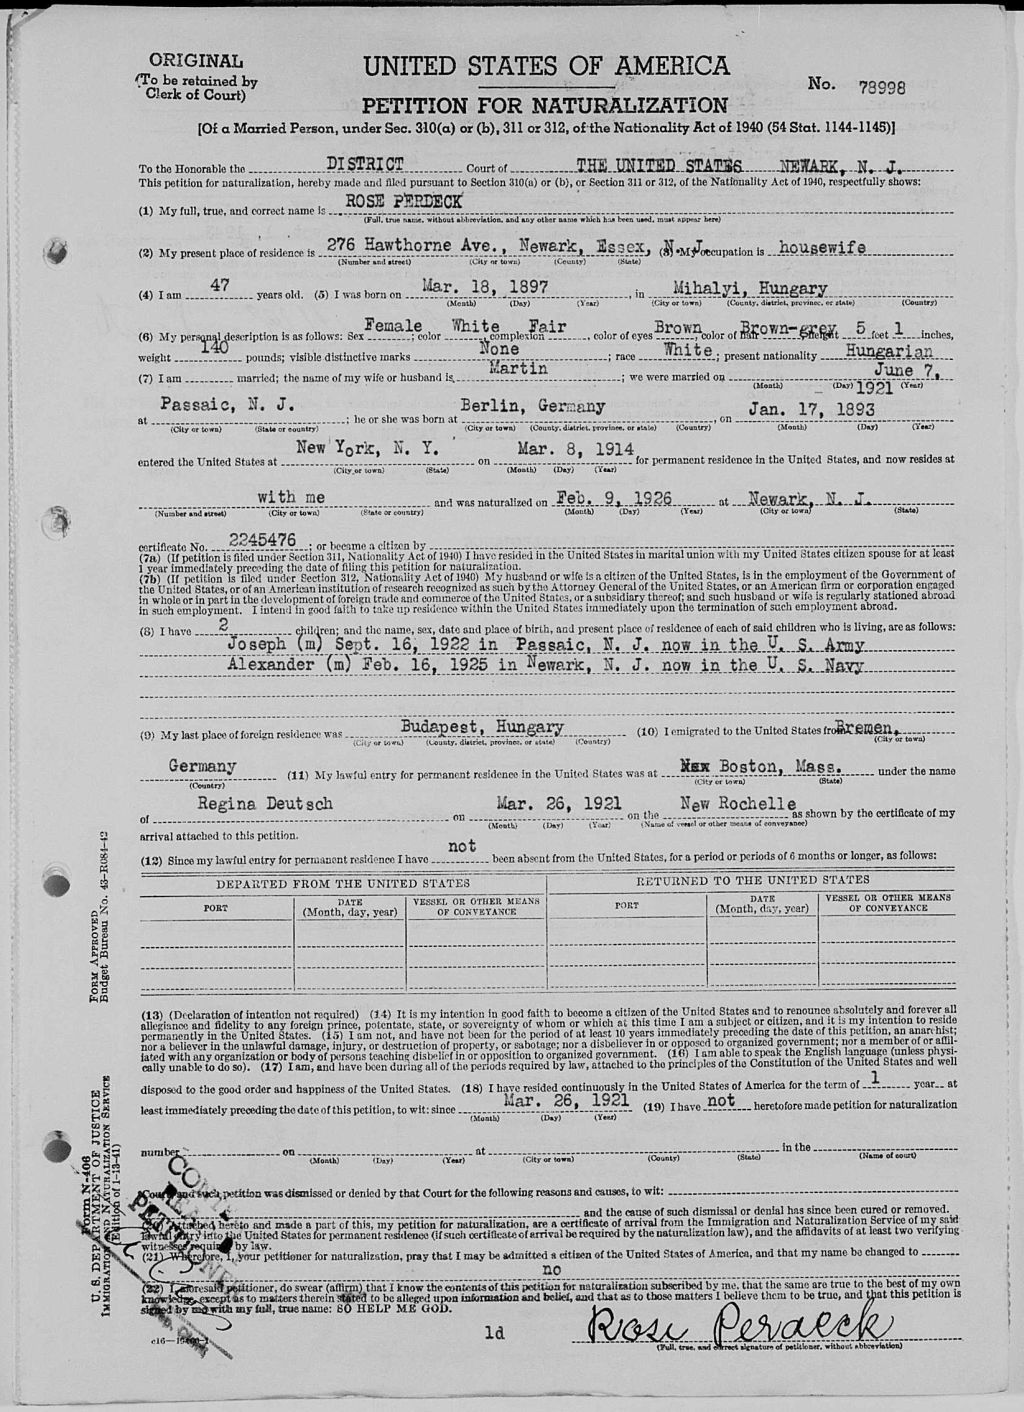 ORIGINAL
(To be retained by
Clerk of Court)
UNITED STATES OF AMERICA
No. 78998
PETITION FOR NATURALIZATION
[Of a Married Person, under Sec. 310(a) or (b), 311 or 312, of the Nationality Act of 1940 (54 Stat. 1144-1145)]
To the Honorable the DISTRICT Court of THE UNITED STATES NEWARK, N. J.
This petition for naturalization, hereby made and filed pursuant to Section 310(a) or (b), or Section 311 or 312, of the Nationality Act of 1940, respectfully shows:
(1) My full, true, and correct name is ROSE PERDECK
(Full, true name, without abbreviation, and any other name which has been used, must appear here)
(2) My present place of residence is 276 Hawthorne Ave., Newark, Essex, N. J. (3) My occupation is housewife
(Number and street) (City or town) (County) (State)
(4) I am 47 years old. (5) I was born on Mar. 18, 1897, in Mihalyi, Hungary
(Month) (Day) (Year) (City or town) (County, district, province, or state) (Country)
(6) My personal description is as follows: Sex Female; color White complexion Fair, color of eyes Brown, color of hair Brown-grey, height 5 feet 1 inches,
weight 140 pounds; visible distinctive marks None; race White; present nationality Hungarian
(7) I am married; the name of my wife or husband is Martin; we were married on June 7, 1921
(Month) (Day) (Year)
at Passaic, N. J.; he or she was born at Berlin, Germany, on Jan. 17, 1893
(City or town) (State or country) (City or town) (County, district, province, or state) (Country) (Month) (Day) (Year)
entered the United States at New York, N. Y. on Mar. 8, 1914 for permanent residence in the United States, and now resides at
(City or town) (State) (Month) (Day) (Year)
with me and was naturalized on Feb. 9, 1926 at Newark, N. J.
(Number and street) (City or town) (State or country) (Month) (Day) (Year) (City or town) (State)
certificate No. 2245476; or became a citizen by
(7a) (If petition is filed under Section 311, Nationality Act of 1940) I have resided in the United States in marital union with my United States citizen spouse for at least
1 year immediately preceding the date of filing this petition for naturalization.
(7b) (If petition is filed under Section 312, Nationality Act of 1940) My husband or wife is a citizen of the United States, is in the employment of the Government of
the United States, or of an American institution of research recognized as such by the Attorney General of the United States, or an American firm or corporation engaged
in whole or in part in the development of foreign trade and commerce of the United States, or a subsidiary thereof; and such husband or wife is regularly stationed abroad
in such employment. I intend in good faith to take up residence within the United States immediately upon the termination of such employment abroad.
(8) I have 2 children; and the name, sex, date and place of birth, and present place of residence of each of said children who is living, are as follows:
Joseph (m) Sept. 16, 1922 in Passaic, N. J. now in the U. S. Army
Alexander (m) Feb. 16, 1925 in Newark, N. J. now in the U. S. Navy
(9) My last place of foreign residence was Budapest, Hungary (10) I emigrated to the United States from Bremen,
(City or town) (County, district, province, or state) (Country) (City or town)
Germany (11) My lawful entry for permanent residence in the United States was at Boston, Mass. under the name
(Country) (City or town) (State)
of Regina Deutsch on Mar. 26, 1921 on the New Rochelle as shown by the certificate of my
(Month) (Day) (Year) (Name of vessel or other means of conveyance)
arrival attached to this petition.
(12) Since my lawful entry for permanent residence I have not been absent from the United States, for a period or periods of 6 months or longer, as follows:
DEPARTED FROM THE UNITED STATES RETURNED TO THE UNITED STATES
PORT DATE (Month, day, year) VESSEL OR OTHER MEANS OF CONVEYANCE PORT DATE (Month, day, year) VESSEL OR OTHER MEANS OF CONVEYANCE
(13) (Declaration of intention not required) (14) It is my intention in good faith to become a citizen of the United States and to renounce absolutely and forever all
allegiance and fidelity to any foreign prince, potentate, state, or sovereignty of whom or which at this time I am a subject or citizen, and it is my intention to reside
permanently in the United States. (15) I am not, and have not been for the period of at least 10 years immediately preceding the date of this petition, an anarchist;
nor a believer in the unlawful damage, injury, or destruction of property, or sabotage; nor a disbeliever in or opposed to organized government; nor a member of or affil-
iated with any organization or body of persons teaching disbelief in or opposition to organized government. (16) I am able to speak the English language (unless physi-
cally unable to do so). (17) I am, and have been during all of the periods required by law, attached to the principles of the Constitution of the United States and well
disposed to the good order and happiness of the United States. (18) I have resided continuously in the United States of America for the term of 1 year at
least immediately preceding the date of this petition, to wit: since Mar. 26, 1921 (19) I have not heretofore made petition for naturalization
(Month) (Day) (Year)
number on at in the
(Month) (Day) (Year) (City or town) (County) (State) (Name of court)
Court, and such petition was dismissed or denied by that Court for the following reasons and causes, to wit:
and the cause of such dismissal or denial has since been cured or removed.
(20) Attached hereto and made a part of this, my petition for naturalization, are a certificate of arrival from the Immigration and Naturalization Service of my said
lawful entry into the United States for permanent residence (if such certificate of arrival be required by the naturalization law), and the affidavits of at least two verifying
witnesses required by law.
(21) Wherefore, I, your petitioner for naturalization, pray that I may be admitted a citizen of the United States of America, and that my name be changed to
no
(22) I, aforesaid petitioner, do swear (affirm) that I know the contents of this petition for naturalization subscribed by me, that the same are true to the best of my own
knowledge, except as to matters therein stated to be alleged upon information and belief, and that as to those matters I believe them to be true, and that this petition is
signed by me with my full, true name: SO HELP ME GOD.
1d
Rose Perdeck
(Full, true, and correct signature of petitioner, without abbreviation)
Form N-406
U. S. DEPARTMENT OF JUSTICE
IMMIGRATION AND NATURALIZATION SERVICE
(Edition of 1-13-41)
FORM APPROVED
Budget Bureau No. 43-R084-42